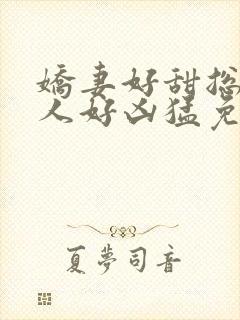 嬌妻好甜
人好凶猛免
夏夢司音